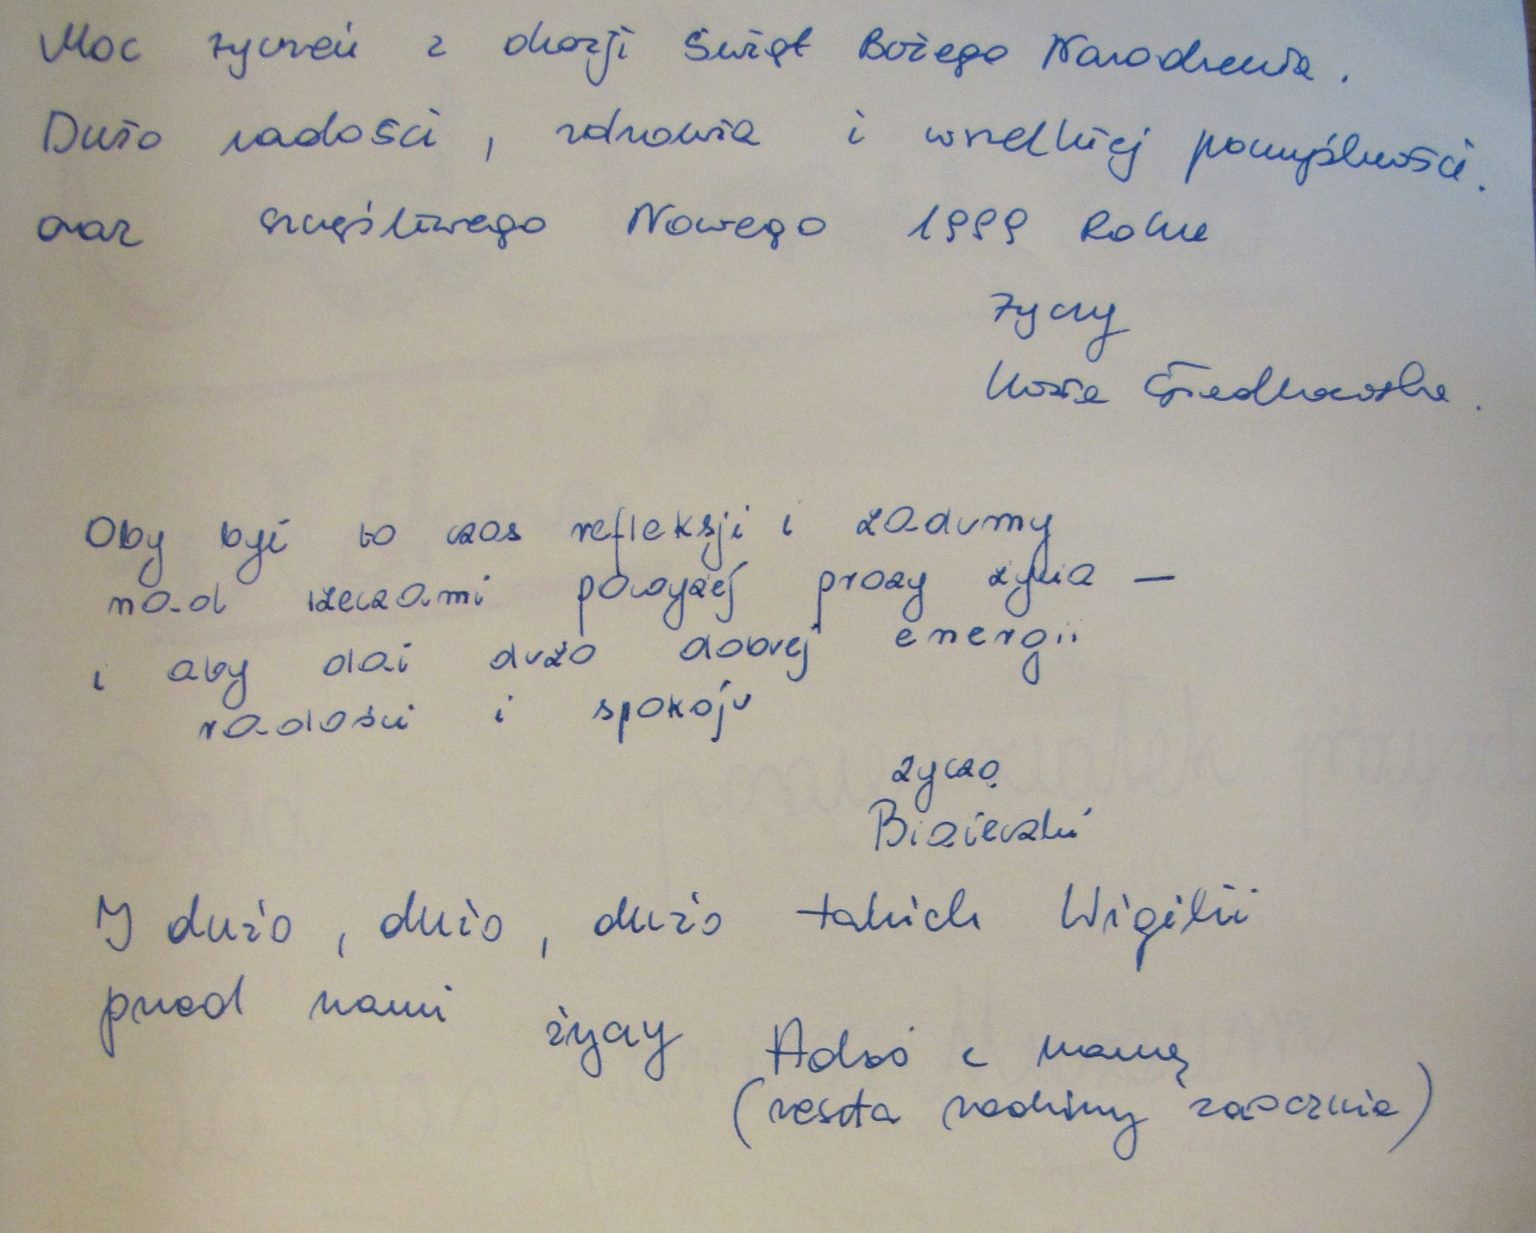 Moc życzeń z okazji Świąt Bożego Narodzenia.
Dużo radości, zdrowia i wszelkiej pomyślności.
oraz szczęśliwego Nowego 1999 Roku
życzy
Kasia
Oby był to czas refleksji i zadumy
nad rzeczami powyżej prozy życia –
i aby dał dużo dobrej energii
radości i spokoju
życzą
I dużo, dużo, dużo takich Wigilii
przed nami życzy Adaś z mamą
(reszta rodziny zaocznie)